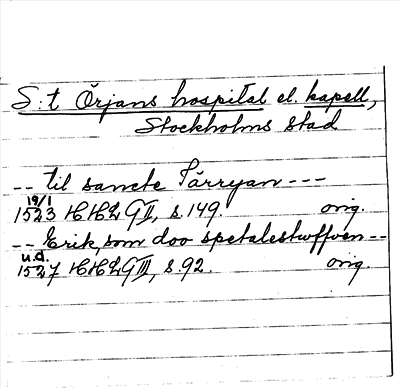 S:t Örjans hospital el. kapell,
Stockholms stad
-- til sancte Tárryan ---
19/1
1523 HH2 GII, s. 149. orig.
-- Erik, som doo spetalestwffven --
u.d.
1527 HH2 GIII, s. 92. orig.